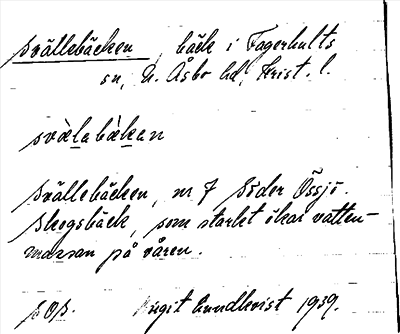 Svällebäcken, bäck i Fagerhults
sn, N. Åsbo hd, Krist. l.
svälabäkan
Svällebäcken, nr 7 Söder Össjö.
Skogsbäck, som starkt ökar vatten-
massan på våren.
Birgit Lundkvist 1939.